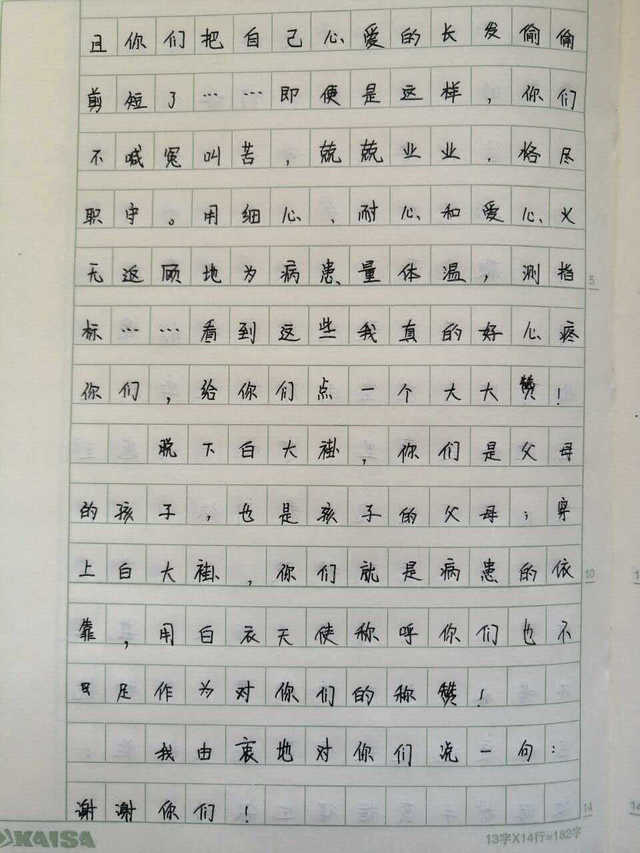 且你们把自己心爱的长发偷偷
剪短了……即便是这样，你们
不喊冤叫苦，兢兢业业，恪尽
职守。用细心、耐心和爱心、义
无返顾地为病患量体温，测指
标……看到这些我真的好心疼
你们，给你们点一个大大赞！
脱下白大褂，你们是父母
的孩子，也是孩子的父母；穿
上白大褂，你们就是病患的依
靠，用白衣天使称呼你们也不
足作为对你们的称赞！
我由衷地对你们说一句：
谢谢你们！
5
10
14
KAISA
13字X14行=182字